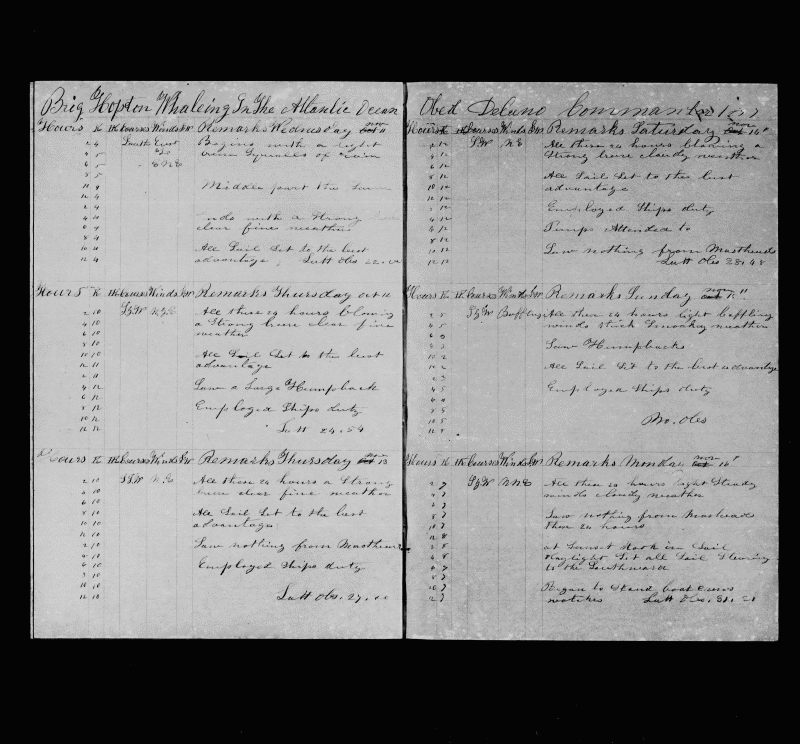 Brig Hopton Whaleing In The Atlantic Ocean
Hours K HK Courses Winds Lw Remarks Wednesday nov 11
2 4 South East Begins with a light
4 5 To
6 5 E N E
Middle part the Same
Ends with a Strong
clear fine weather
All Sail Set to the best
12 4 advantage Latt Obs 22.
Hours K HK Courses Winds Lw Remarks Thursday
2 10 All these 24 hours blowing
4 10 a Strong breze clear fine
6 10 weather
10 10 All Sail Set to the best
12 11 advantage
4 12 Saw a Large Humpback
6 12
8 12 Employed Ships duty
10 12
12 12 Latt 24.54
Hours K HK Courses Winds Lw Remarks Thursday nov 13
2 10 All these 24 hours a Strong
4 10 breze clear fine weather
6 10
8 10 All Sail Set to the best
10 10 advantage
12 10
2 10 Saw nothing from Masthead
4 10
6 10 Employed Ships duty
8 10
10 10
12 10 Latt Obs. 27.
Obed Delano Commander
Hours K HK Courses Winds Lw Remarks Saturday nov
2 12 N E All these 24 hours blowing a
4 12 Strong breze cloudy weather
6 12
8 12 All Sail Set to the best
10 12 advantage
12 12
2 12 Employed Ships duty
4 12
6 12 Pumps Attended to
8 12
10 12 Saw nothing from Mastheads
12 12 Latt Obs 28.48
Hours K HK Courses Winds Lw Remarks Sunday nov
2 5 Baffling All these 24 hours light baffling
4 5 winds thick Smokey weather
Saw Humpbacks
10 2 All Sail Set to the best advantage
Employed Ships duty
10 5 No. Obs
Hours K HK Courses Winds Lw Remarks Monday nov 16
2 7 N N E All these 24 hours light Steady
4 7 winds cloudy weather
6 7
8 7 Saw nothing from Masheads
10 7 these 24 hours
12 8
2 8 at Sunset Took in Sail
4 8 Daylight Set all Sail Stearing
6 7 to the Southward
8 7
10 7 Began to Stand boat Crews
12 7 watches Latt Obs. 31.21